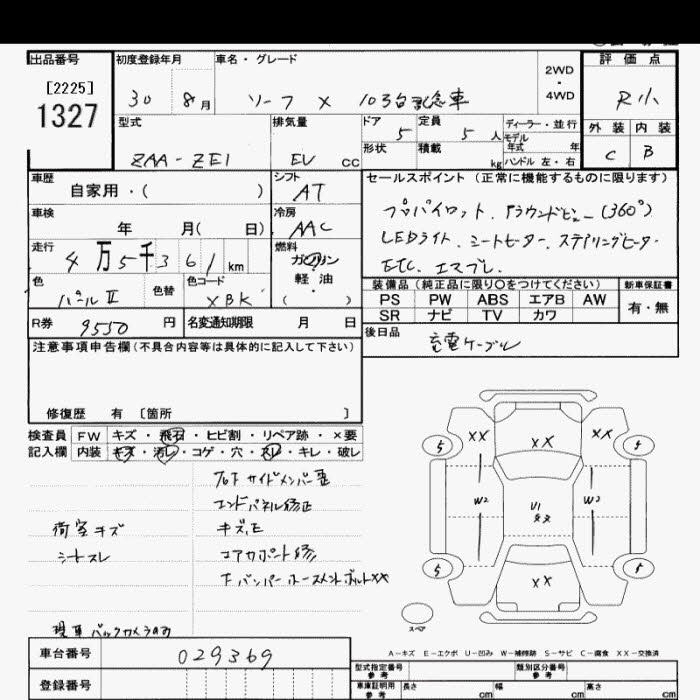 出品番号
[2225]
1327
初度登録年月
30 8月
車名・グレード
リーフ X 10万台記念車
2WD
・
4WD
評価点
R小
外装 内装
C B
型式
ZAA-ZE1
排気量
EV cc
ドア 5
定員 5 人
形状
積載 kg
ディーラー・並行
モデル年式 年
ハンドル 左・右
車歴
自家用・( )
シフト
AT
セールスポイント (正常に機能するものに限ります)
プロパイロット、アラウンドビュー(360°)
LEDライト、シートヒーター、ステアリングヒーター
ETC、エマブレ、
車検
年 月( 日)
冷房
AAC
走行
4万5千361km
燃料
ガソリン
・
軽油
( )
色
パールⅡ
色替
色コード
XBK
装備品 (純正品に限り○をつけてください)
PS PW ABS エアB AW
SR ナビ TV カワ
新車保証書
有・無
R券
9550 円
名変通知期限 月 日
後日品
充電ケーブル
注意事項申告欄(不具合内容等は具体的に記入して下さい)
修復歴 有 [箇所 ]
検査員 FW キズ・飛石・ヒビ割・リペア跡・×要
記入欄 内装 キズ・汚レ・コゲ・穴・スレ・キレ・破レ
サイドメンバー
エンドパネル修正
荷室キズ
シートスレ
コアサポート修
現車バックカメラのみ
XX XX XX
5 5
W2 U1 XX W3
5 5
XX
スペア
A-キズ E-エクボ U-凹み W-補修跡 S-サビ C-腐食 XX-交換済
車台番号
029369
登録番号
型式指定番号 参考
類別区分番号 参考
車庫証明用 参考
長さ cm 幅 cm 高さ cm